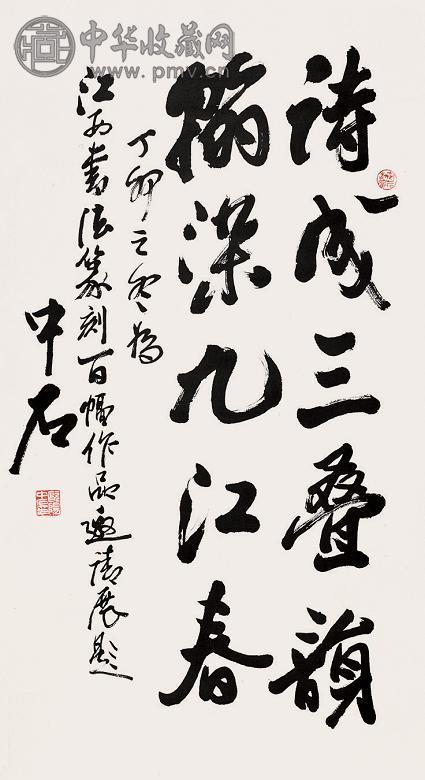 中华收藏网
www.pmv.cn
诗成三叠韵
翰染九江春
丁卯之冬为
江西书法篆刻百幅作品邀请展题
中石